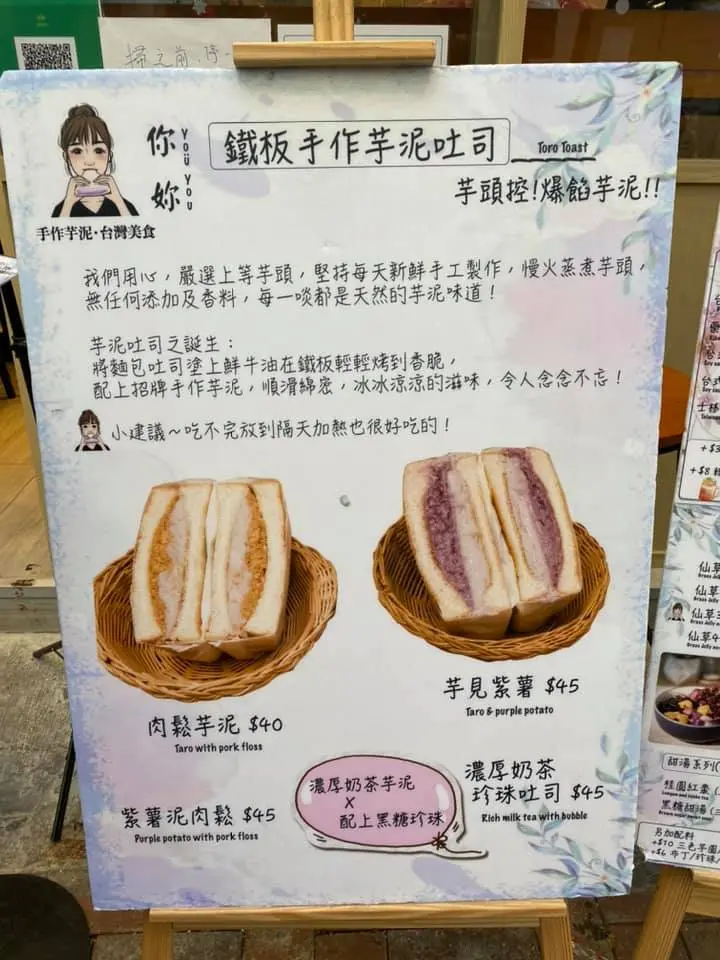 你妳
YOU YOU
手作芋泥·台灣美食
鐵板手作芋泥吐司
Toro Toast
芋頭控!爆餡芋泥!!
我們用心,嚴選上等芋頭,堅持每天新鮮手工製作,慢火蒸煮芋頭,
無任何添加及香料,每一啖都是天然的芋泥味道!
芋泥吐司之誕生:
將麵包吐司塗上鮮牛油在鐵板輕輕烤到香脆,
配上招牌手作芋泥,順滑綿密,冰冰涼涼的滋味,令人念念不忘!
小建議~吃不完放到隔天加熱也很好吃的!
肉鬆芋泥 $40
Taro with pork floss
芋見紫薯 $45
Taro & purple potato
紫薯泥肉鬆 $45
Purple potato with pork floss
濃厚奶茶芋泥
X
配上黑糖珍珠
濃厚奶茶
珍珠吐司 $45
Rich milk tea with bubble
仙草
仙草
仙草3
仙草4
甜湯系列(
桂圓紅棗
黑糖甜湯
另加配料
+$10 三色芋圓
+$6 布丁/珍珠/